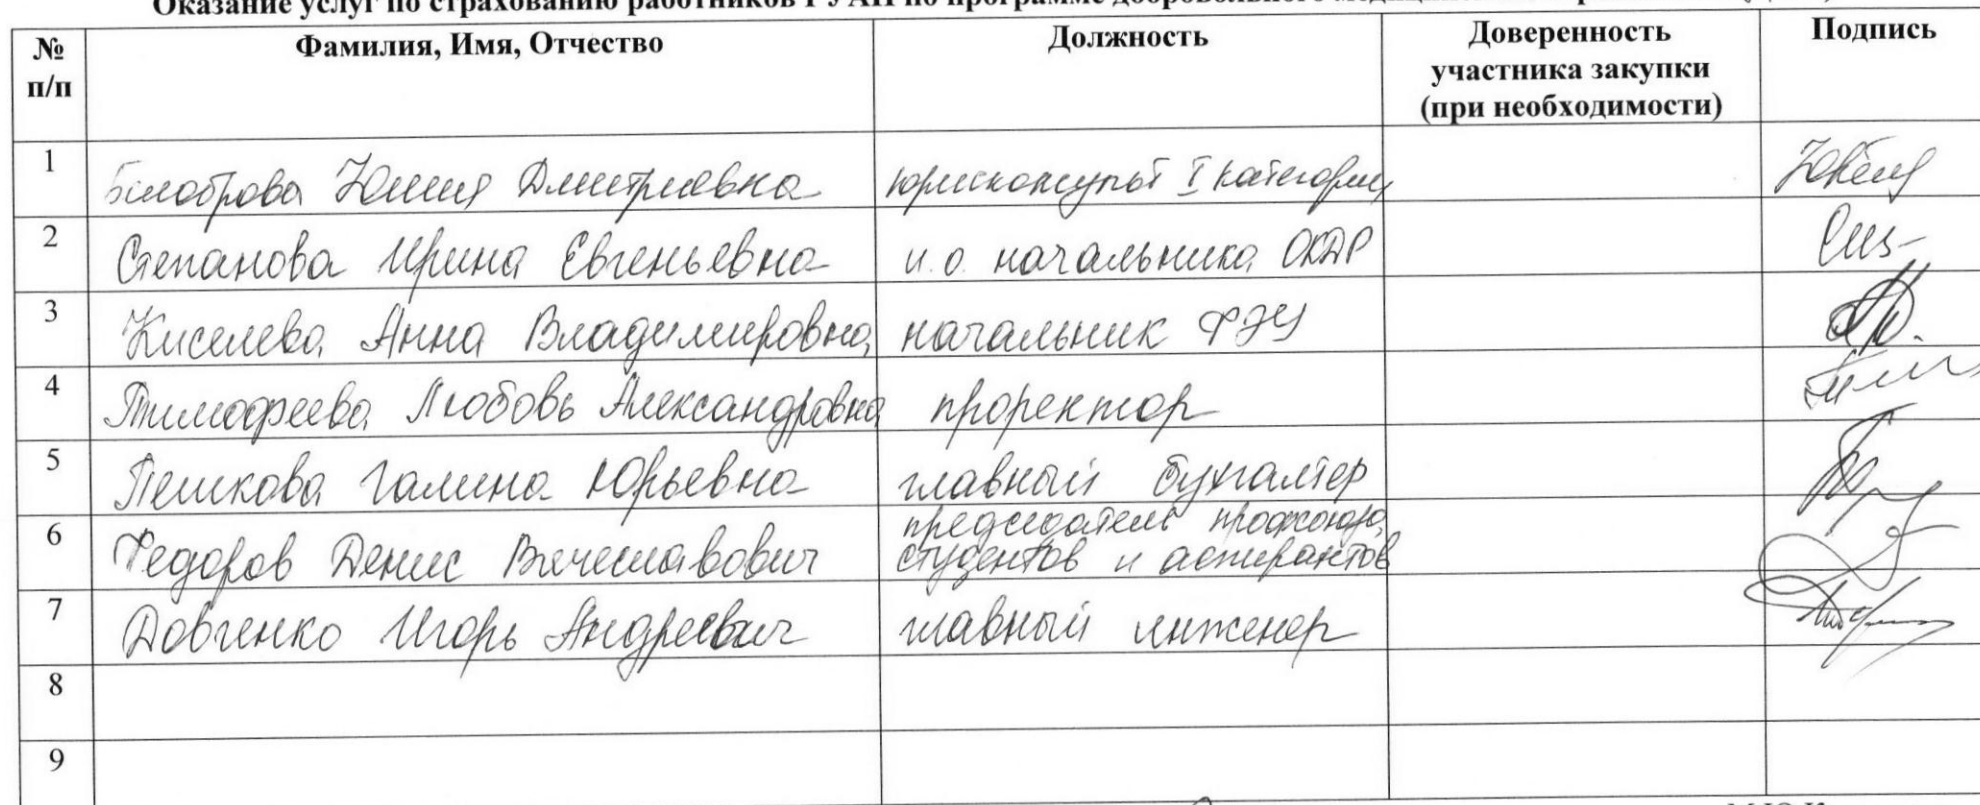 Оказание услуг по страхованию работников ГУАП по программе добровольного
№ п/п Фамилия, Имя, Отчество Должность Доверенность участника закупки (при необходимости) Подпись
1 Белоброва Юлия Дмитриевна юрисконсульт I категории
2 Степанова Ирина Евгеньевна и.о. начальника ОКДР
3 Киселева Анна Владимировна начальник ФЭУ
4 Тимофеева Любовь Александровна проректор
5 Пешкова Галина Юрьевна главный бухгалтер
6 Федоров Денис Вячеславович председатель студентов и аспирантов
7 Довгенко Игорь Андреевич главный инженер
8
9